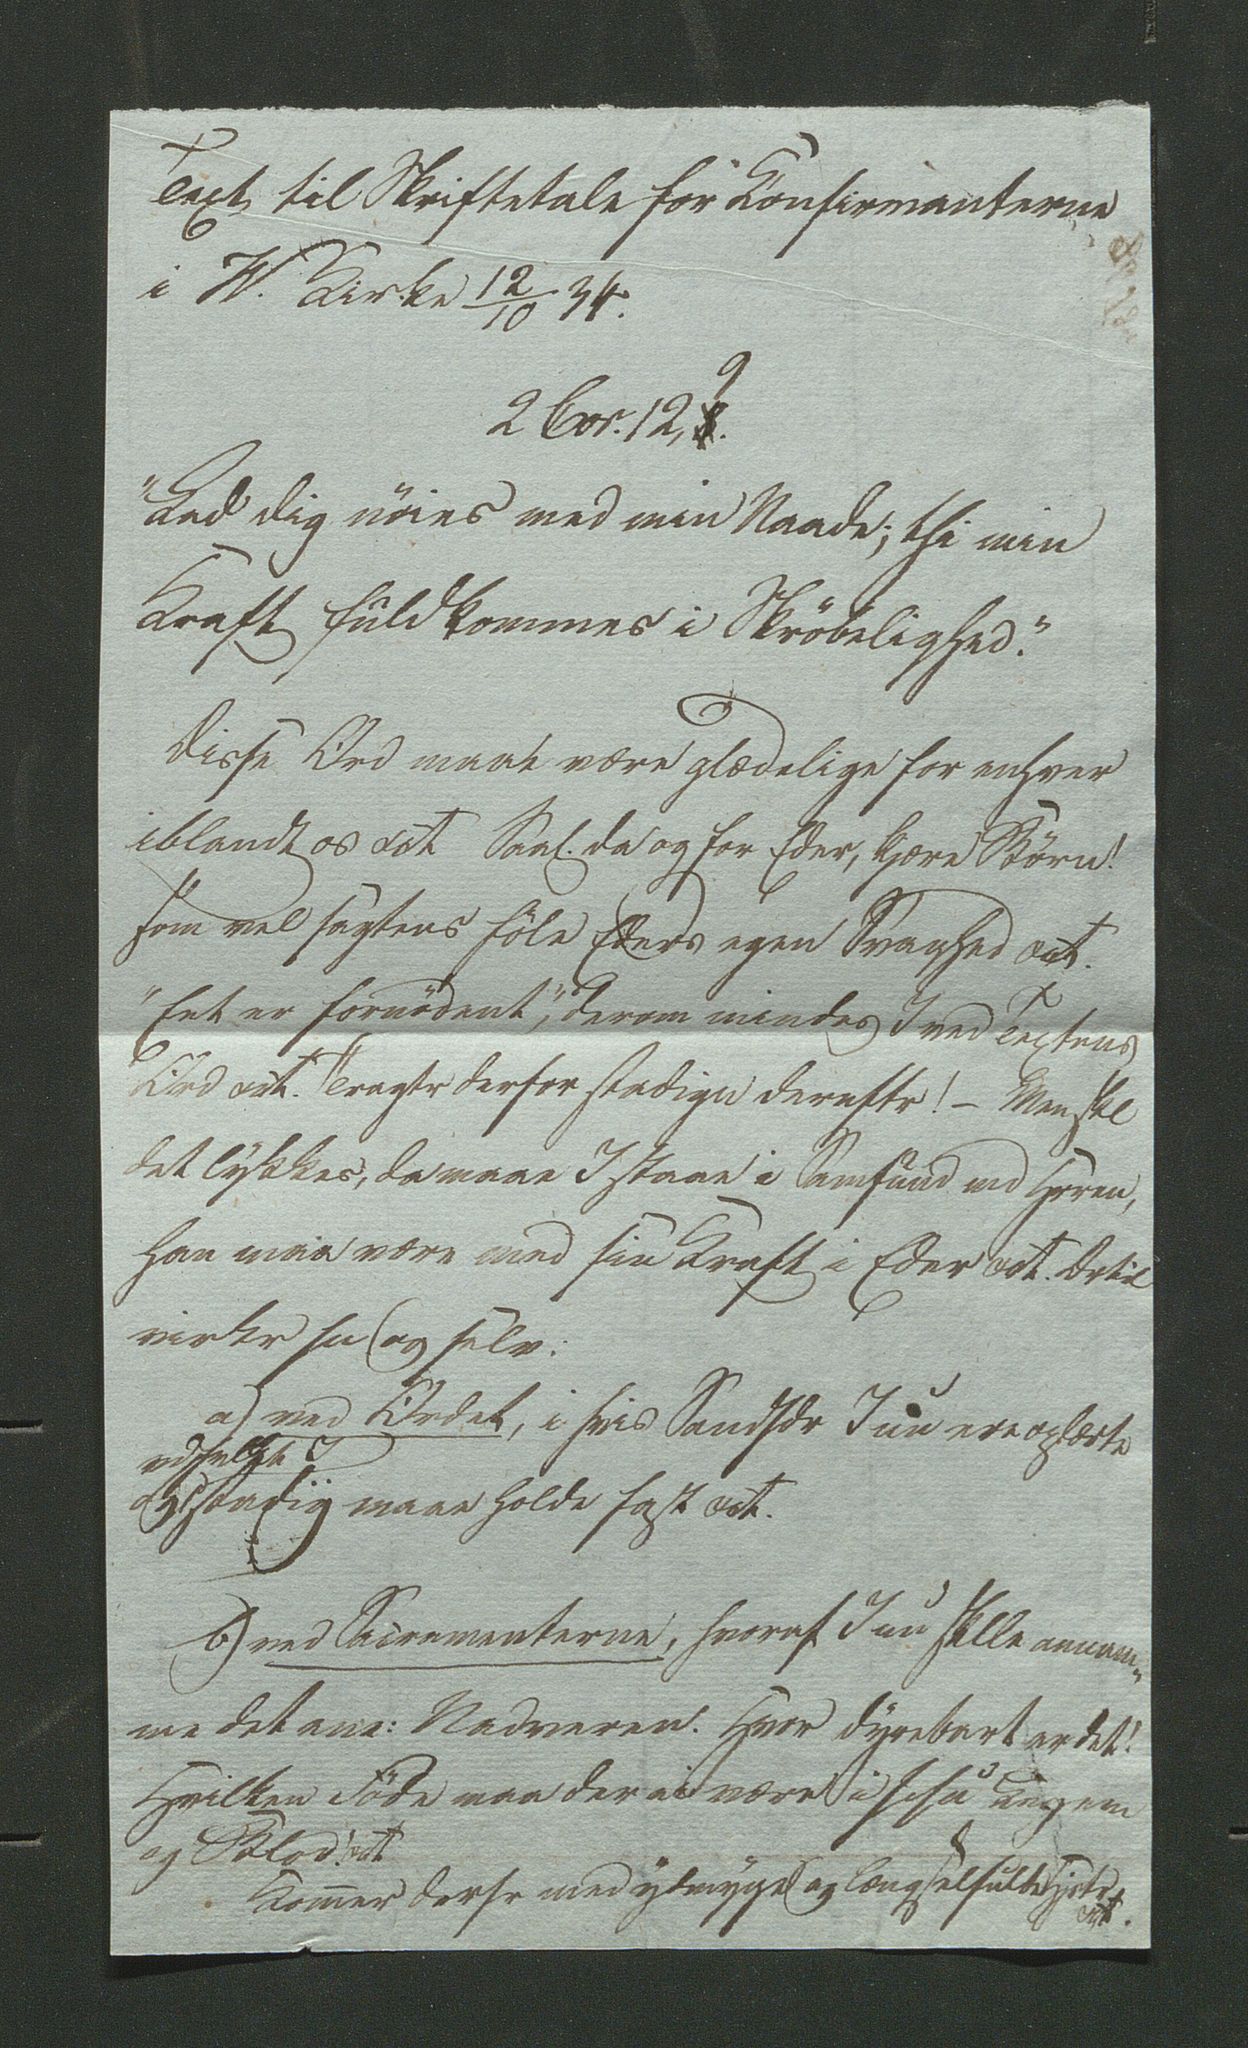 Text til Skriftetale for Confirmanterne
i W. Kirke 12/10 34.
2 Cor. 12, 9.
"Lad dig nöies med min Naade; thi min
Kraft fuldkommes i Skröbelighed."
Disse Ord maae være glædelige for enhver
iblandt os &ct Saal. da og for Eder, kjære Börn!
som vel sagtens föle Eders egen Svaghed &ct.
"Eet er fornödent", derom mindes I ved Textens
Ord &ct. Tragter derfor stadigen derefter! – Men skal
det lykkes, da maae I staae i Samfund med Herren,
Han maa være med sin Kraft i Eder &ct. Dertil
virker han og selv:
a) ved Ordet, i hvis Sandhdr I nu ere oplærte
ved hvilke I
og stadig maae holde fast &ct.
b) ved Sacramenterne, hvoraf I nu skulle annam-
me det ene: Nadveren. Hvor dyrebart er det!
Hvilken Föde maa der ei være i Jesu Legem
og Blod! &ct
Kommer derfr med ydmyge og længselsfulde Hjrter
&ct.